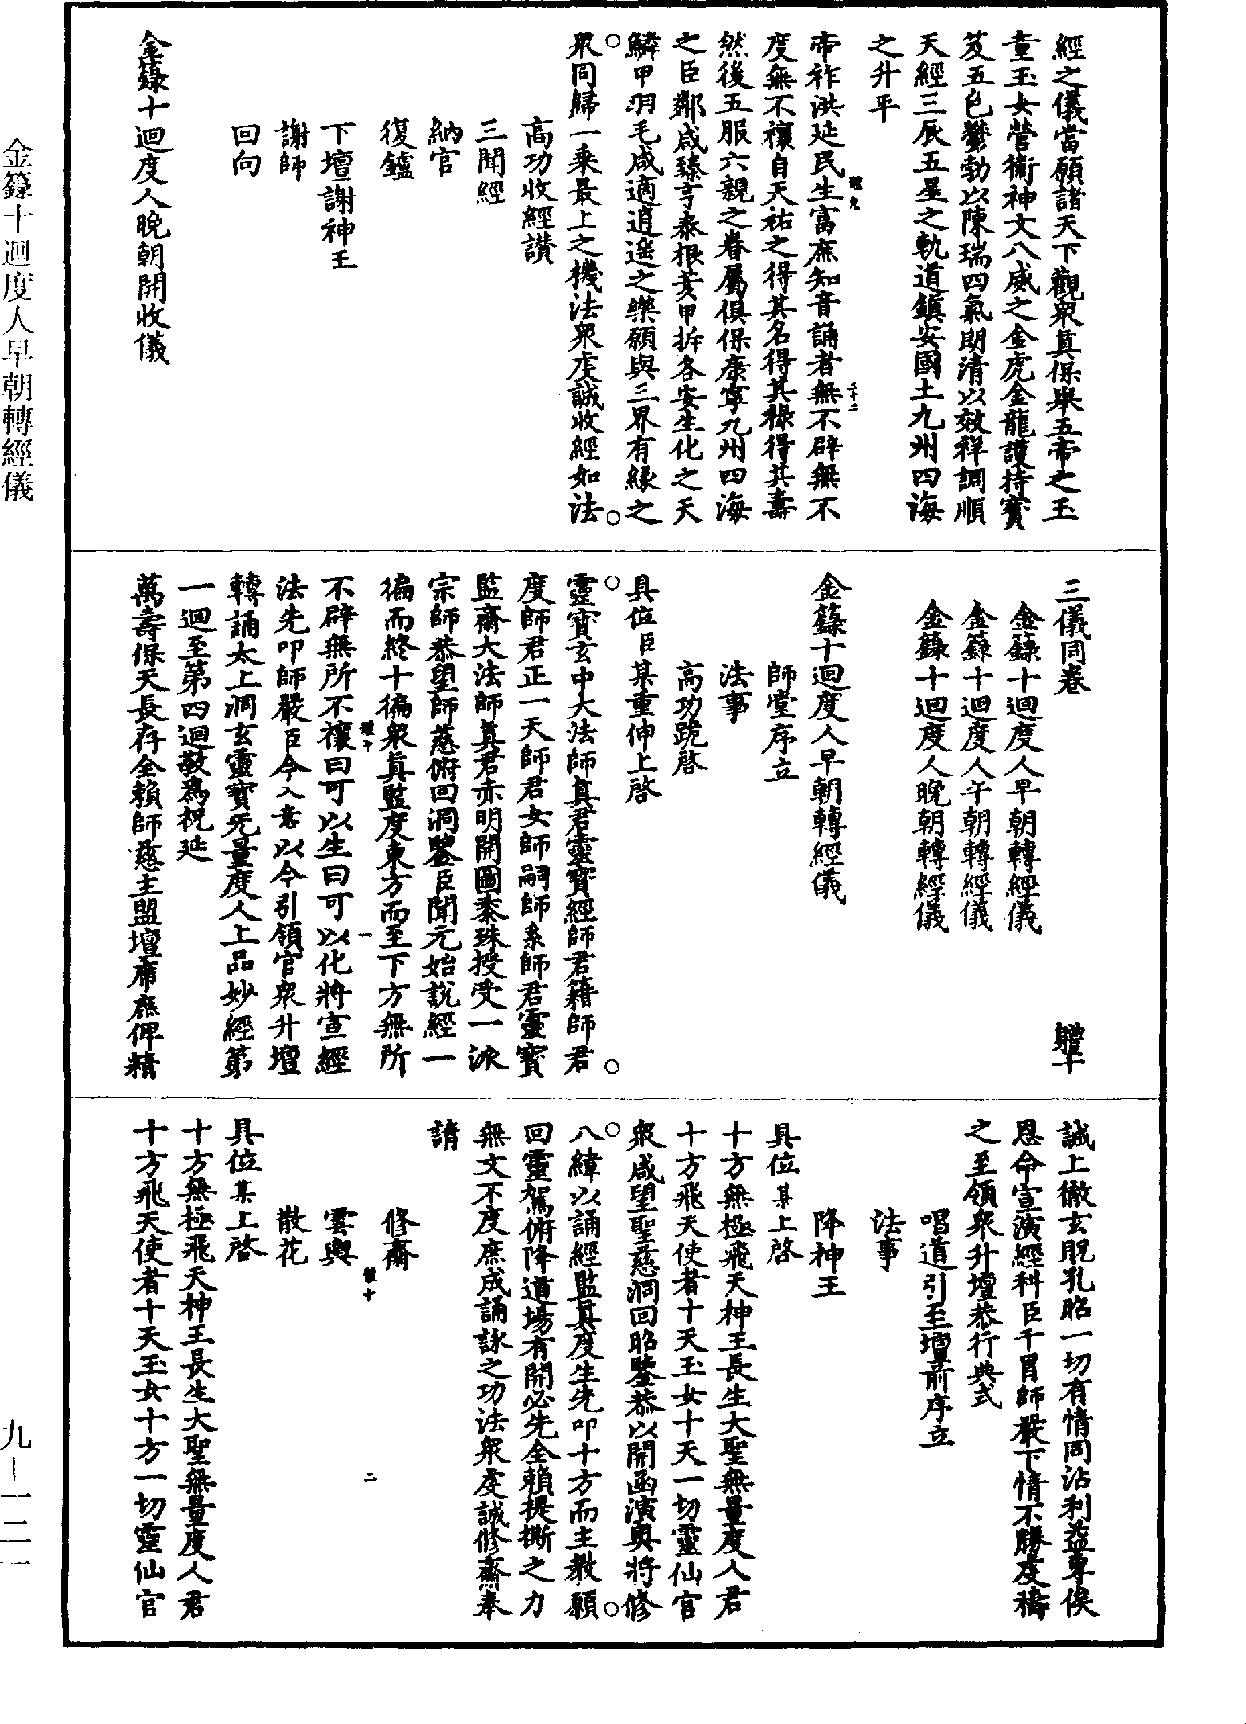 經之儀當願諸天下觀衆真保舉五帝之玉
童玉女營衛神文八威之金虎金龍護持寶
笈五色鬱勃以陳瑞四氣朗清以效祥調順
天經三辰五星之軌道鎮安國土九州四海
之升平
帝祚洪延民生富庶知音誦者無不辟無不
度無不禳自天祐之得其名得其祿得其壽
然後五服六親之眷屬俱保康寧九州四海
之臣鄰咸臻亨泰根荄甲拆各安生化之天
鱗甲羽毛咸適逍遙之樂願與三界有緣之
衆同歸一乘最上之機法衆虔誠收經如法
高功收經讚
三聞經
納官
復鑪
下壇謝神王
謝師
回向
金籙十迴度人晚朝開收儀
三儀同卷
體十
金籙十迴度人早朝轉經儀
金籙十迴度人午朝轉經儀
金籙十迴度人晚朝轉經儀
金籙十迴度人早朝轉經儀
師堂序立
法事
高功跪啓
具位臣某重伸上啓
靈寶玄中大法師真君靈寶經師君籍師君
度師君正一天師君女師嗣師系師君靈寶
監齋大法師真君赤明開圖黍珠授受一派
宗師恭望師慈俯回洞鑒臣聞元始說經一
徧而終十徧衆真監度東方而至下方無所
不辟無所不禳曰可以生曰可以化將宣經
法先叩師嚴臣今入意以今引領官衆升壇
轉誦太上洞玄靈寶无量度人上品妙經第
一迴至第四迴敬爲祝延
萬壽保天長存全賴師慈主盟壇席庶俾精
誠上徹玄貺孔昭一切有情同沾利益專俟
恩命宣演經科臣干冒師嚴下情不勝虔禱
之至領衆升壇恭行典式
唱道引至壇前序立
法事
降神王
具位某上啓
十方無極飛天神王長生大聖無量度人君
十方飛天使者十天玉女十天一切靈仙官
衆咸望聖慈洞回昭鑒恭以開函演奧將修
八緯以誦經監真度生先叩十方而主教願
回靈駕俯降道場有開必先全賴提撕之力
無文不度庶成誦詠之功法衆虔誠修齋奉
請
修齋
雲輿
散花
具位某上啓
十方無極飛天神王長生大聖無量度人君
十方飛天使者十天玉女十方一切靈仙官
金籙十迴度人早朝轉經儀
九—一二一